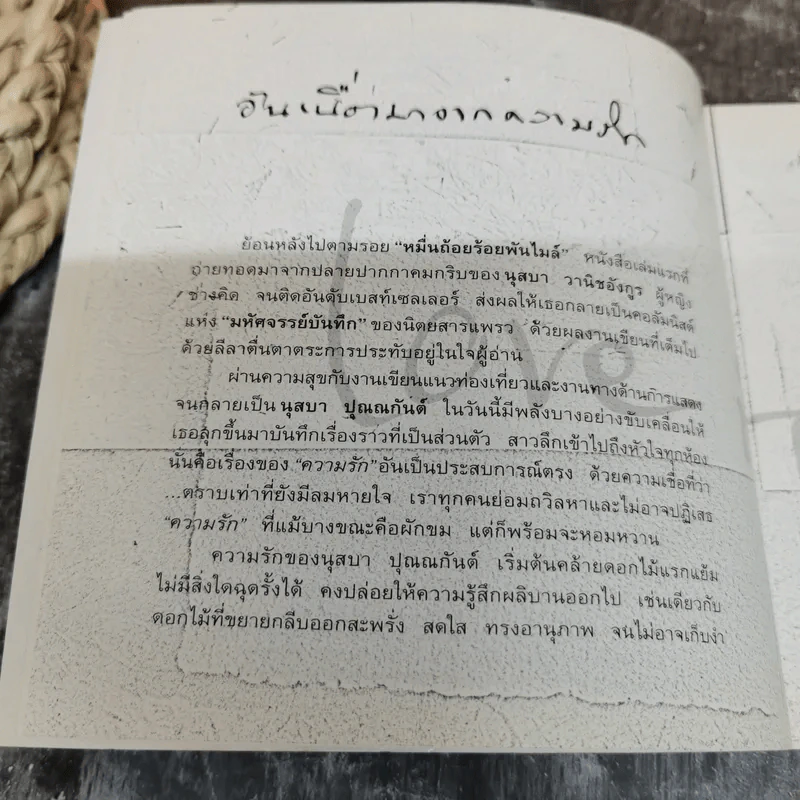 อันเนื่องมาจากความรัก
Love
ย้อนหลังไปตามรอย “หมื่นถ้อยร้อยพันไมล์” หนังสือเล่มแรกที่
ถ่ายทอดมาจากปลายปากกาคมกริบของ นุสบา วานิชอังกูร ผู้หญิง
ช่างคิด จนติดอันดับเบสท์เซลเลอร์ ส่งผลให้เธอกลายเป็นคอลัมนิสต์
แห่ง “มหัศจรรย์บันทึก” ของนิตยสารแพรว ด้วยผลงานเขียนที่เต็มไป
ด้วยลีลาตื่นตาตระการประทับอยู่ในใจผู้อ่าน
ผ่านความสุขกับงานเขียนแนวท่องเที่ยวและงานทางด้านการแสดง
จนกลายเป็น นุสบา ปุณณกันต์ ในวันนี้มีพลังบางอย่างขับเคลื่อนให้
เธอลุกขึ้นมาบันทึกเรื่องราวที่เป็นส่วนตัว สาวลึกเข้าไปถึงหัวใจทุกห้อง
นั่นคือเรื่องของ “ความรัก” อันเป็นประสบการณ์ตรง ด้วยความเชื่อที่ว่า
...ตราบเท่าที่ยังมีลมหายใจ เราทุกคนย่อมถวิลหาและไม่อาจปฏิเสธ
“ความรัก” ที่แม้บางขณะคือผักขม แต่ก็พร้อมจะหอมหวาน
ความรักของนุสบา ปุณณกันต์ เริ่มต้นคล้ายดอกไม้แรกแย้ม
ไม่มีสิ่งใดฉุดรั้งได้ คงปล่อยให้ความรู้สึกผลิบานออกไป เช่นเดียวกับ
ดอกไม้ที่ขยายกลีบออกสะพรั่ง สดใส ทรงอานุภาพ จนไม่อาจเก็บงำ